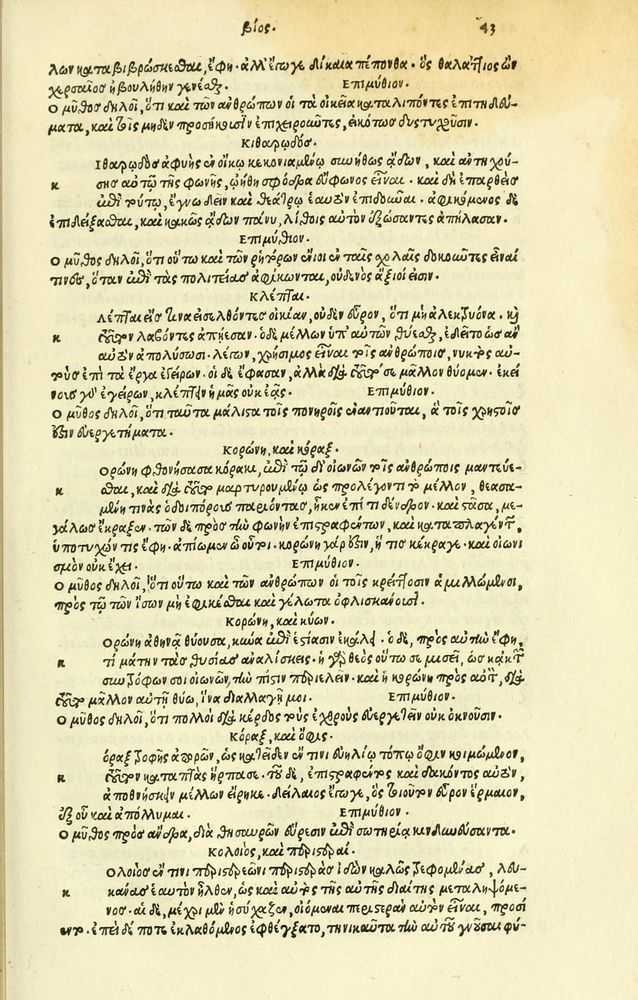 βίος. 43
λων καταβιβρώσκεσθαι, ἔφη. ἀλλ' ἔγωγε δίκαια πέπονθα. ὃς θαλάττιος ὢν
χερσαῖος ἠβουλήθην γενέσθαι. Επιμύθιον.
Ο μῦθος δηλοῖ, ὅτι καὶ τῶν ἀνθρώπων οἱ τὰ οἰκεῖα καταλιπόντες ἐπιτηδεύ-
ματα, καὶ τοῖς μηδὲν προσήκουσιν ἐπιχειροῦντες, εἰκότως δυστυχοῦσιν.
Κιθαρῳδός.
Ιθαρῳδὸς ἀφυὴς ἐν οἴκῳ κεκονιαμένῳ συνήθως ᾄδων, καὶ ἀντηχού-
κ σης αὐτῷ τῆς φωνῆς, ᾠήθη σφόδρα εὔφωνος εἶναι. καὶ δὴ ἐπαρθεὶς
ἐπὶ τούτῳ, ἔγνω δεῖν καὶ θεάτρῳ ἑαυτὸν ἐπιδοῦναι. ἀφικόμενος δὲ
ἐπιδείξασθαι, καὶ κακῶς ᾄδων πάνυ, λίθοις αὐτὸν ἐξώσαντες ἀπήλασαν.
Επιμύθιον.
Ο μῦθος δηλοῖ, ὅτι οὕτω καὶ τῶν ῥητόρων ἔνιοι ἐν ταῖς σχολαῖς δοκοῦντες εἶναί
τινες, ὅταν ἐπὶ τὰς πολιτείας ἀφίκωνται, οὐδενὸς ἄξιοί εἰσιν.
Κλέπται.
Λέπται εἴς τινα εἰσελθόντες οἰκίαν, οὐδὲν εὗρον, ὅτι μὴ ἀλεκτρυόνα. καὶ
κ τοῦτον λαβόντες ἀπῄεσαν. ὁ δὲ μέλλων ὑπ' αὐτῶν θύεσθαι, ἐδεῖτο ὡς ἂν
αὐτὸν ἀπολύσωσι. λέγων, χρήσιμος εἶναι τοῖς ἀνθρώποις, νυκτὸς αὐ-
τοὺς ἐπὶ τὰ ἔργα ἐγείρων. οἱ δὲ ἔφασαν, ἀλλὰ διὰ τοῦτό σε μᾶλλον θύομεν. ἐκεί
νους γὰρ ἐγείρων, κλέπτειν ἡμᾶς οὐκ ἐᾷς. Επιμύθιον.
Ο μῦθος δηλοῖ, ὅτι ταῦτα μάλιστα τοῖς πονηροῖς ἐναντιοῦται, ἃ τοῖς χρηστοῖς
ἐστὶν εὐεργετήματα.
Κορώνη, καὶ κόραξ.
Ορώνη φθονήσασα κόρακι, ἐπὶ τῷ δι' οἰωνῶν τοῖς ἀνθρώποις μαντεύε-
κ σθαι, καὶ διὰ τοῦτο μαρτυρουμένῳ ὡς προλέγοντι τὸ μέλλον, θεασα-
μένη τινὰς ὁδοιπόρους παριόντας, ἧκεν ἐπί τι δένδρον. καὶ στᾶσα, με-
γάλως ἔκραξεν. τῶν δὲ πρὸς τὴν φωνὴν ἐπιστραφέντων, καὶ καταπλαγέντων,
ὑποτυχών τις ἔφη. ἀπίωμεν ὦ οὗτοι. κορώνη γάρ ἐστιν, ἥτις κέκραγε. καὶ οἰωνι
σμὸν οὐκ ἔχει. Επιμύθιον.
Ο μῦθος δηλοῖ, ὅτι οὕτω καὶ τῶν ἀνθρώπων οἱ τοῖς κρείττοσιν ἁμιλλώμενοι,
πρὸς τῷ τῶν ἴσων μὴ ἐφικέσθαι καὶ γέλωτα ὀφλισκάνουσι.
Κορώνη, καὶ κύων.
Ορώνη ἀθηνᾷ θύουσα, κύνα ἐπὶ ἑστίασιν ἐκάλει. ὁ δὲ, πρὸς αὐτὴν ἔφη,
κ τί μάτην τὰς θυσίας ἀναλίσκεις. ἡ γὰρ θεὸς οὕτω σε μισεῖ, ὡς κἀκ τῶν
συντρόφων σοι οἰωνῶν, τὴν πίστιν περιελεῖν. καὶ ἡ κορώνη πρὸς αὐτὸν, διὰ
τοῦτο μᾶλλον αὐτῇ θύω, ἵνα διαλλαγῇ μοι. Επιμύθιον.
Ο μῦθος δηλοῖ, ὅτι πολλοὶ διὰ κέρδος τοὺς ἐχθροὺς εὐεργετεῖν οὐκ ὀκνοῦσιν.
Κόραξ, καὶ ὄφις.
όραξ τροφῆς ἀπορῶν, ὡς κατεῖδεν ἔν τινι εὐηλίῳ τόπῳ ὄφιν κοιμώμενον,
κ τοῦτον καταπτὰς ἥρπασε. τοῦ δὲ, ἐπιστραφέντος καὶ δακόντος αὐτὸν,
ἀποθνήσκειν μέλλων εἴρηκε. δείλαιος ἔγωγε, ὃς τοιοῦτον εὗρον ἕρμαιον,
ἐξ οὗ καὶ ἀπόλλυμαι. Επιμύθιον.
Ο μῦθος πρὸς ἄνδρα, διὰ θησαυρῶν εὕρεσιν ἐπὶ σωτηρίᾳ κινδυνεύσαντα.
Κολοιὸς, καὶ περιστεραί.
Ολοιὸς ἔν τινι περιστερεῶνι περιστερὰς ἰδὼν καλῶς τρεφομένας, λευ-
κ κάνας ἑαυτὸν ἦλθεν, ὡς καὶ αὐτὸς τῆς αὐτῆς διαίτης μεταληψόμε-
νος. αἱ δὲ, μέχρι μὲν ἡσύχαζεν, οἰόμεναι περιστερὰν αὐτὸν εἶναι, προσί
εντο. ἐπεὶ δέ ποτε ἐκλαθόμενος ἐφθέγξατο, τηνικαῦτα τὴν αὐτοῦ γνοῦσαι φύ-